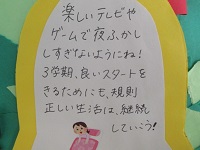 楽しいテレビや
ゲームで夜ふかし
しすぎないようにね!
3学期、良いスタートを
きるためにも、規則
正しい生活は、継続
していこう!